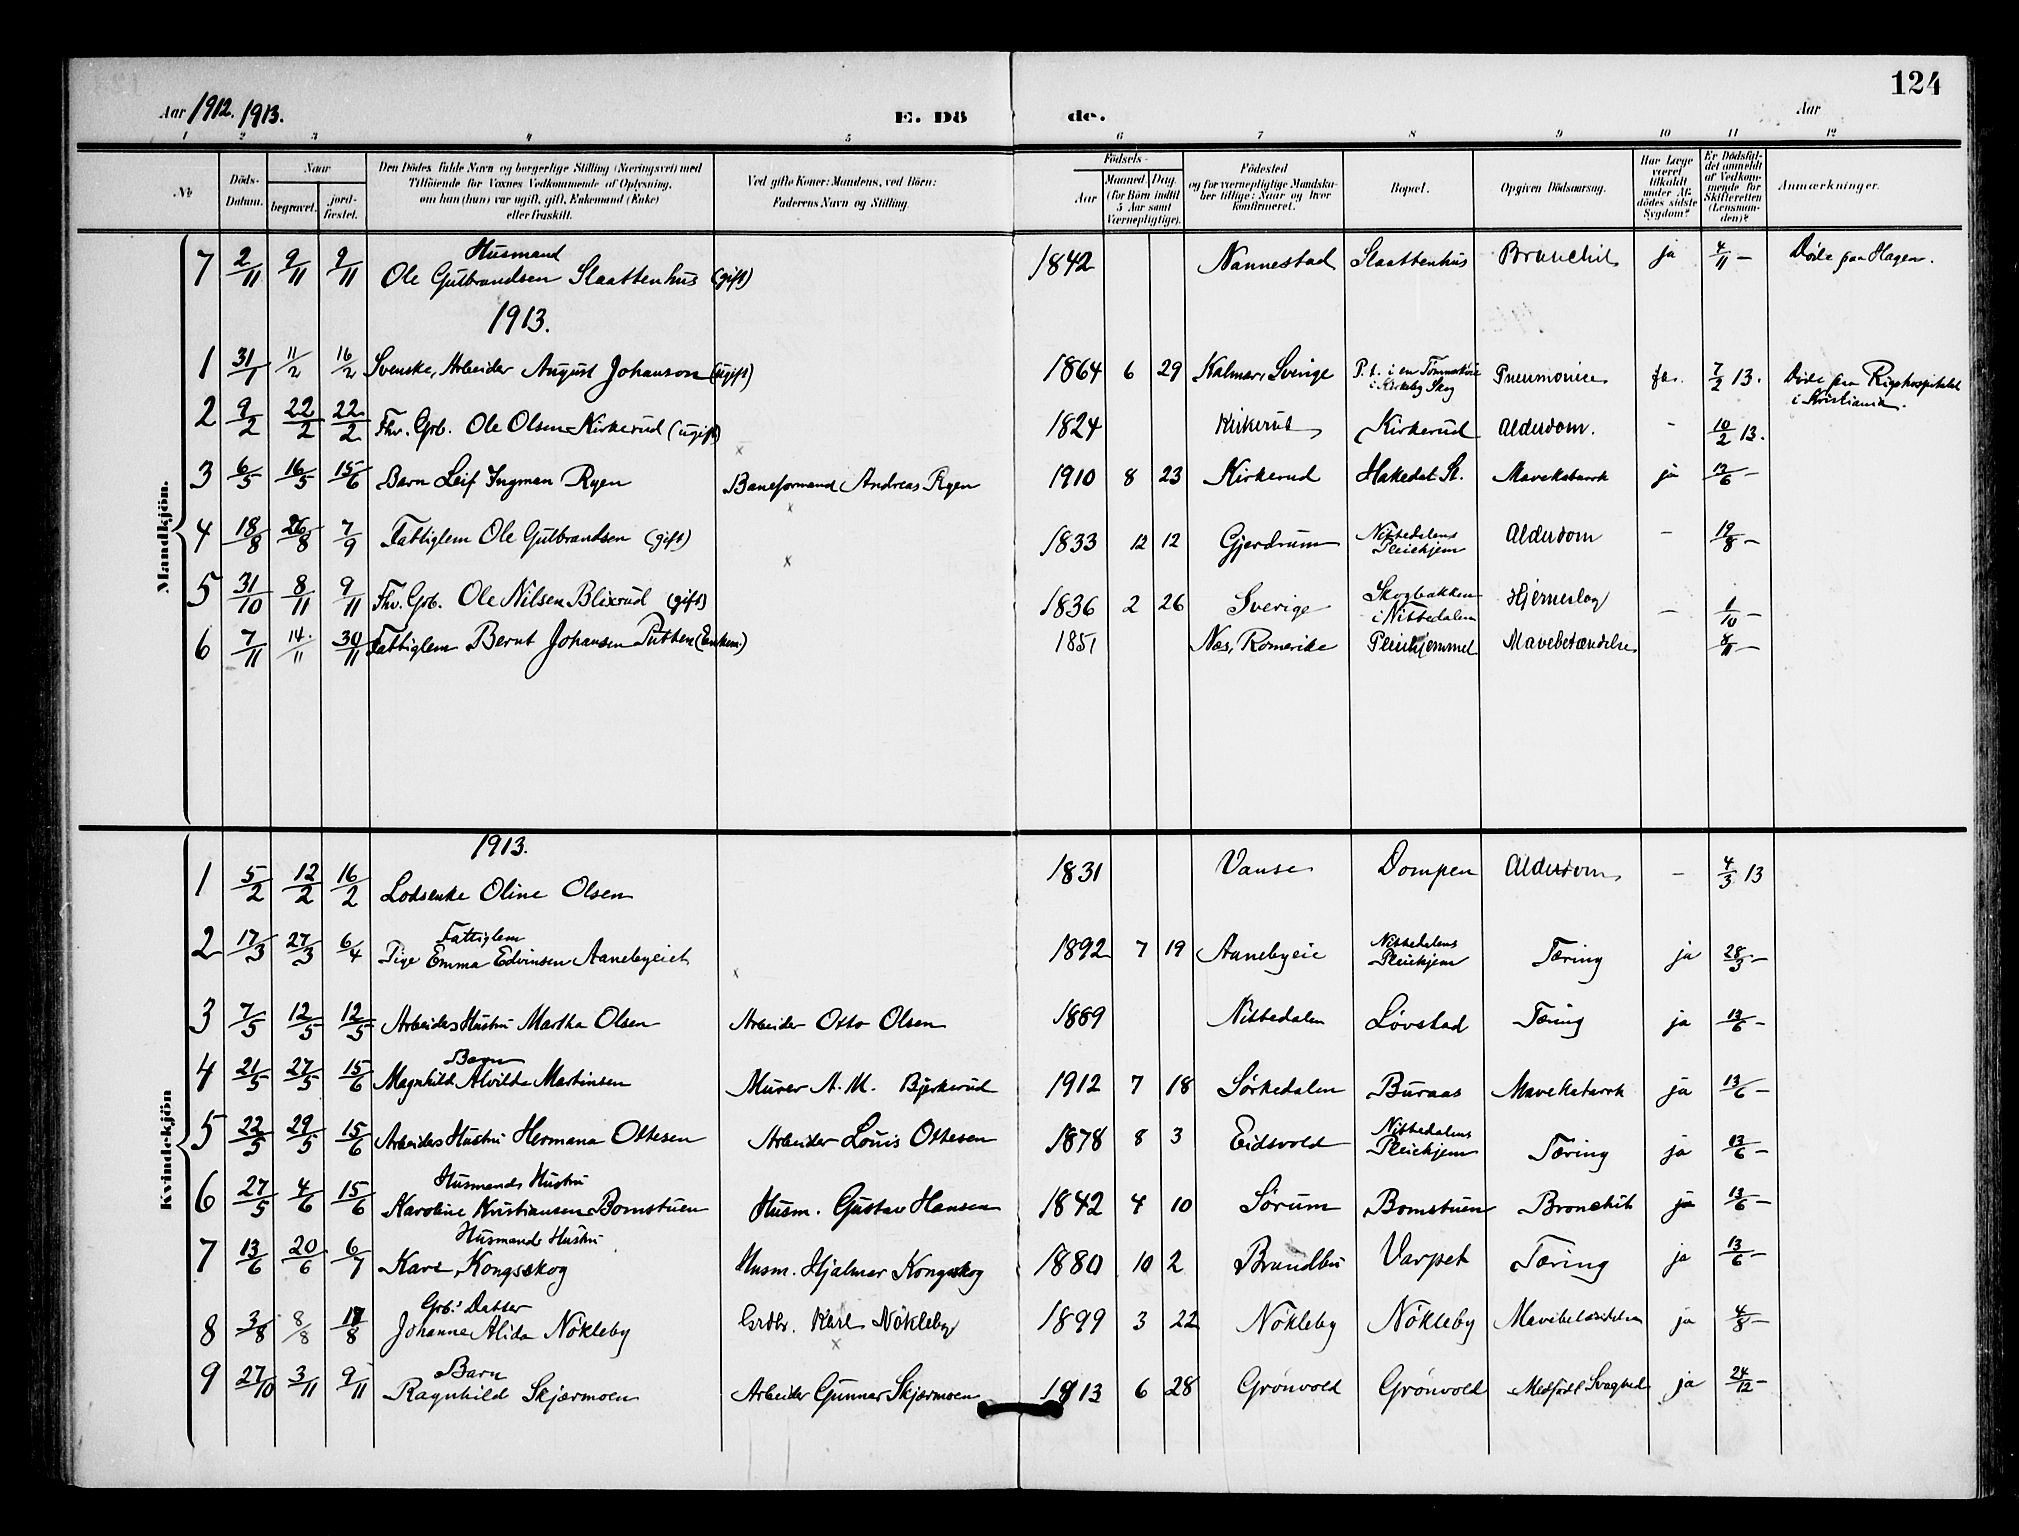 124
Aar 1912. 1913.
E. Dö de.
Aar
1 2 3 4 5 6 7 8 9 10 11 12
№
Döds-Datum.
Naar
begravet.
jord-fæstet.
Den Dödes fulde Navn og borgerlige Stilling (Næringsvei) med
Tilföiende for Voxnes Vedkommende af Oplysning,
om han (hun) var ugift, gift, Enkemand (Enke)
eller fraskilt.
Ved gifte Koner: Mandens, ved Börn:
Faderens Navn og Stilling
Födsels-
Aar
Maaned Dag
(for Börn indtil
5 Aar samt
Værnepligtige).
Födested
og for værnepligtige Mandska-
ber tillige: Naar og hvor
konfirmeret.
Bopæl.
Opgiven Dödsaarsag.
Har Læge
været
tilkaldt
under Af-
dödes sidste
Sygdom?
Er Dödsfal-
det anmeldt
af Vedkom-
mende for
Skifteretten
(Lensman-
den)?
Anmærkninger.
Mandkjön.
7 2/11 9/11 9/11 Husmand
Ole Gulbrandsen Slaattenhus (gift) 1842 Nannestad Slaattenhus Bronchit ja 4/11 – Døde paa Hagen.
1913.
1 31/1 11/2 16/2 Svenske, Arbeider August Johanson (ugift) 1864 6 29 Kalmar, Sverige P. t. i en Tømmerkoie
i Kirkeby Skog Pneumonie ja. 7/2 13. Døde paa Rigshospitalet
i Kristiania.
2 9/2 22/2 22/2 Fhv. Grb. Ole Olsen Kirkerud (ugift) 1824 Kirkerud Kirkerud Alderdom. – 10/2 13.
3 6/5 16/5 15/6 Barn Leif Ingman Ryen Baneformand Andreas Ryen 1910 8 23 Kirkerud Hakedal St. Mavekatarrh ja 13/6 –
4 18/8 26/8 7/9 Fattiglem Ole Gulbrandsen (gift) 1833 12 12 Gjerdrum Nittedalens
Pleiehjem Alderdom – 19/8 –
5 31/10 8/11 9/11 Fhv. Grb. Ole Nilsen Blixrud (gift) 1836 2 26 Sverige Skogbakken
i Nittedalen Hjerneslag – 1/10 –
6 7/11 14/11 30/11 Fattiglem Bernt Johansen Putten (Enkem) 1851 Næs, Romerike Pleiehjemmet Mavebetændelse 8/11 –
Kvindekjön
1913.
1 5/2 12/2 16/2 Lodsenke Oline Olsen 1831 Vanse Dompen Alderdom – 4/3 13
2 17/3 27/3 6/4 Fattiglem
Pige Emma Edvinsen Aanebyeiet 1892 7 19 Aanebyeie Nittedalens
Pleiehjem Tæring ja 28/3 –
3 7/5 12/5 12/5 Arbeiders Hustru Martha Olsen Arbeider Otto Olsen 1889 Nittedalen Løvstad Tæring ja 13/6 –
4 21/5 27/5 15/6 Barn
Magnhild Alvilde Martinsen Murer A. M. Bjerkerud 1912 7 18 Sørkedalen Buraas Mavekatarrh ja 13/6 –
5 22/5 29/5 15/6 Arbeiders Hustru Hermana Ottesen Arbeider Louis Ottesen 1878 8 3 Eidsvold Nittedalens
Pleiehjem Tæring ja 13/6 –
6 27/5 4/6 15/6 Husmands Hustru
Karoline Kristiansen Bomstuen Husm. Gustav Hansen 1842 4 10 Sørum Bomstuen Bronchit ja 13/6 –
7 13/6 20/6 6/7 Husmands Hustru
Kare Kongsskog Husm. Hjalmar Kongsskog 1880 10 2 Brandbu Varpet Tæring ja 13/6 –
8 3/8 8/8 17/8 Grb's Datter
Johanne Alida Nökleby Grdbr. Karl Nökleby 1899 3 22 Nökleby Nökleby Mavebetændelse ja 4/8 –
9 27/10 3/11 9/11 Barn
Ragnhild Skjærmoen Arbeider Gunnar Skjærmoen 1913 6 28 Grönvold Grönvold Medfødt Svaghed ja 24/12 –